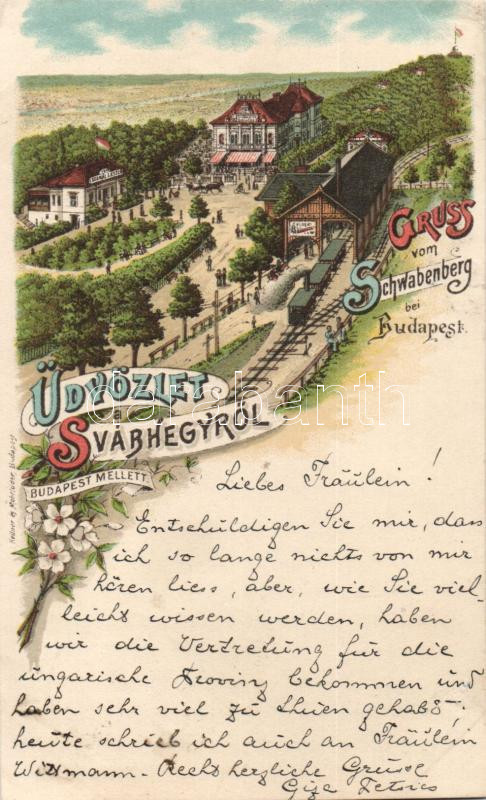 GRUSS
vom
Schwabenberg
bei
Budapest.
ÜDVÖZLET
SVÁBHEGYRŐL
BUDAPEST MELLETT.
darabanth
Liebes Fräulein!
Entschuldigen Sie mir, dass
ich so lange nichts von mir
hören liess, aber, wie Sie viel-
leicht wissen werden, haben
wir die Vertretung für die
ungarische Provinz bekommen und
haben sehr viel zu thuen gehabt;
heute schrieb ich auch an Fräulein
Wittmann. Recht herzliche Grüsse
Giza